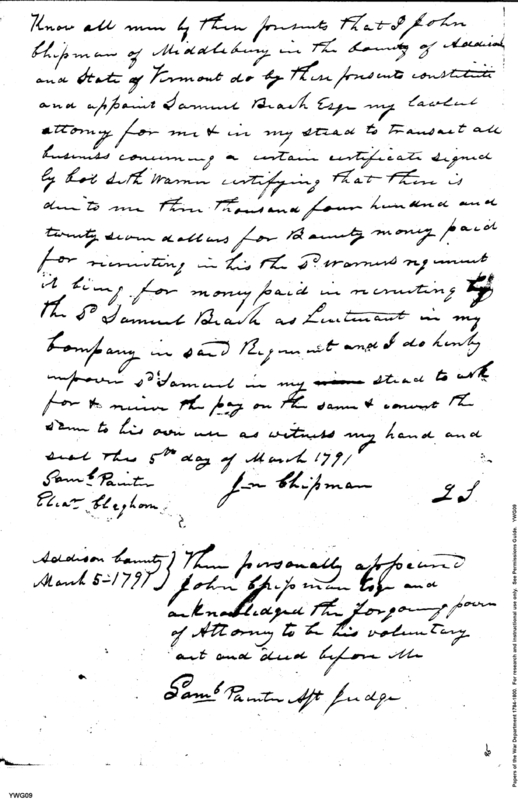 Know all men by these presents that I John
Chipman of Middlebury in the County of Addison
and State of Vermont do by these presents constitute
and appoint Samuel Beach Esqr my lawful
attorney for me & in my stead to transact all
business concerning a certain certificate signed
by Col Seth Warner certifying that there is
due to me three thousand four hundred and
twenty seven dollars for Bounty money paid
for recruiting in his the sd Warners regiment
it being for money paid in recruiting by
the sd Samuel Beach as Lieutenant in my
Company in said Regiment and I do hereby
impower sd Samuel in my stead to ask
for & receive the pay on the same & convert the
same to his own use as witness my hand and
seal this 5th day of March 1791
Saml Painter Jn Chipman L S
Cleghorn
Addison County } Then personally appeared
March 5-1791 } John Chipman Esqr and
acknowledged the forgoing power
of Attorney to be his voluntary
act and deed before Me
Saml Painter Asst Judge
Papers of the War Department 1784-1800. For research and instructional use only. See Permissions Guide. YWG09
YWG09